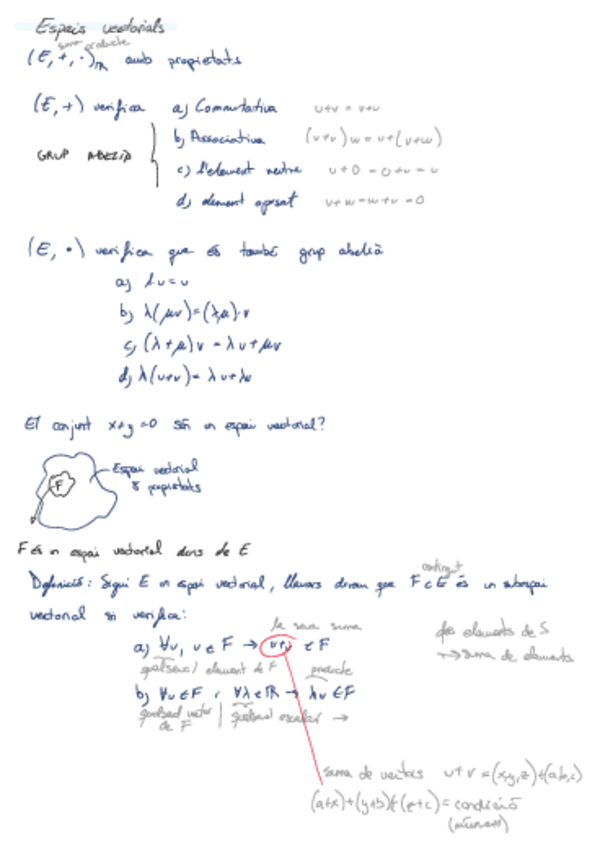 Espais vectorials
suma producte
(E, +, ·)ℝ amb propietats
(E, +) verifica a) Commutativa u+v = v+u
b) Associativa (u+v)w = u+(v+w)
GRUP ABELIÀ
c) l'element neutre u+0 = 0+u = u
d) element oposat u+w = w+u = 0
(E, ·) verifica que és també grup abelià
a) 1u = u
b) λ(μv) = (λμ)·v
c) (λ+μ)v = λv + μv
d) λ(u+v) = λu + λv
El conjunt x+y=0 són un espai vectorial?
Espai vectorial
F
8 propietats
F és un espai vectorial dins de E
contingut
Definició: Sigui E un espai vectorial, llavors direm que F⊂E és un subespai
vectorial si verifica:
la seva suma
a) ∀u, v ∈ F → u+v ∈ F
qualsevol element de F
dos elements de S
→ suma de elements
producte
b) ∀u ∈ F, ∀λ ∈ ℝ → λu ∈ F
qualsevol vector | qualsevol escalar →
de F
suma de vectors u+v = (x,y,z)+(a,b,c)
(a+x)+(y+b)+(z+c) = condició
(número)